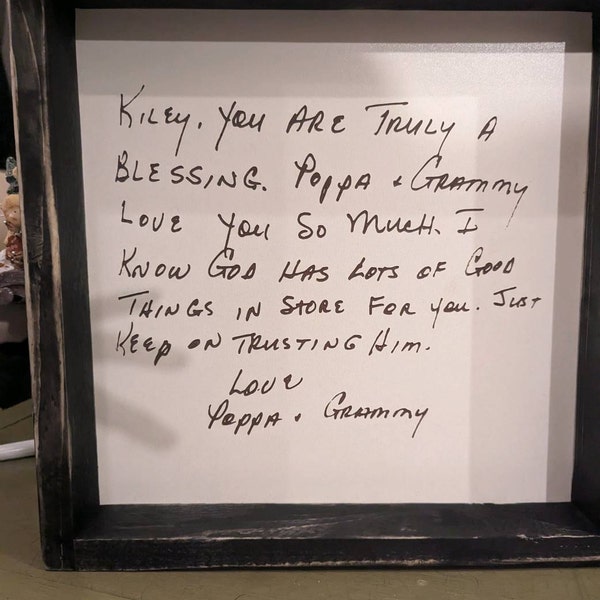 Kiley, You Are Truly A
Blessing. Poppa & Grammy
Love you So Much. I
Know God Has Lots of Good
Things in Store For you. Just
Keep on Trusting Him.
Love
Poppa & Grammy